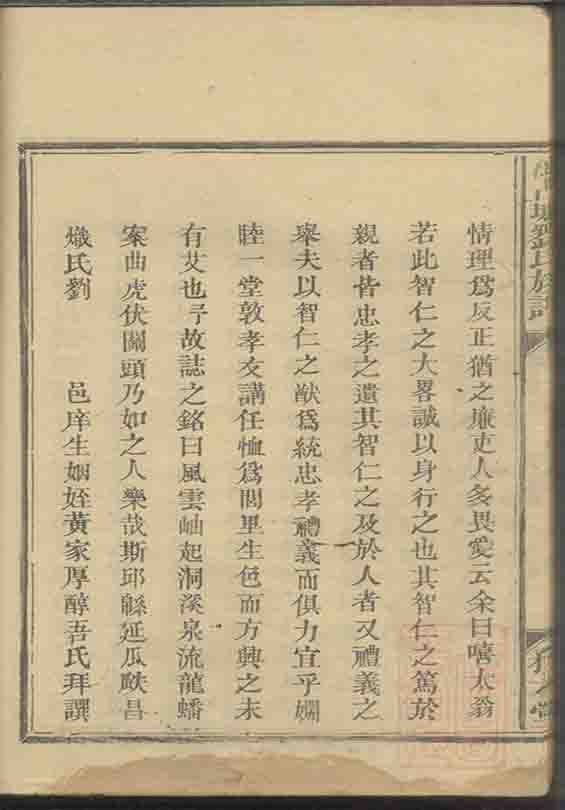 劉氏族譜
情理爲反正猶之廉吏人多畏愛云余曰嘻太翁
若此智仁之大畧誠以身行之也其智仁之篤於
親者皆忠孝之遺其智仁之及於人者又禮義之
舉夫以智仁之猷爲統忠孝禮義而俱力宜乎嫻
睦一堂敦孝友講任恤爲閭里生色而方興之未
有艾也予故誌之銘曰風雲岫起洞溪泉流龍蟠
案曲虎伏關頭乃如之人樂哉斯邱緜延瓜瓞昌
熾氏劉 邑庠生姻姪黃家厚醇吾氏拜譔